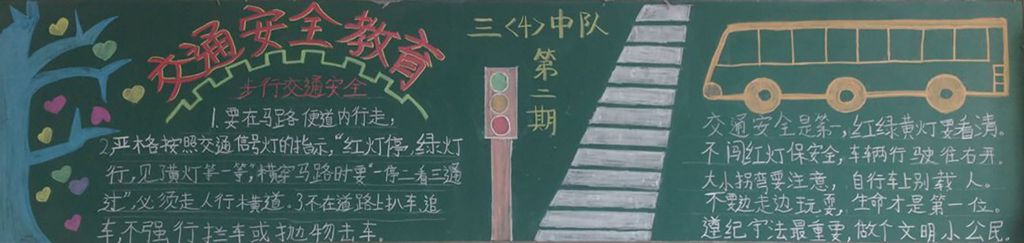 交通安全教育
步行交通安全
1.要在马路便道内行走,
2.严格按照交通信号灯的指示,“红灯停,绿灯
行,见黄灯等一等,”横穿马路时要“一停二看三通
过”,必须走人行横道.3不在道路上扒车追
车,不强行拦车或抛物击车.
三〈4〉中队
第二期
交通安全是第一,红绿黄灯要看清。
不闯红灯保安全,车辆行驶往右开。
大小拐弯要注意,自行车上别载人。
不要边走边玩耍,生命才是第一位。
遵纪守法最重要,做个文明小公民。